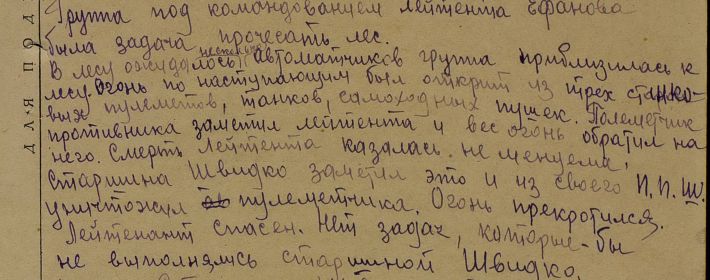 Группа под командованием лейтента Ефанова
была задача прочесать лес.
В лесу ожидалось несколько автоматчиков группа приблизилась к
лесу огонь по наступающим был открит из трех станко-
вых пулеметов, танков, самоходных пушек. Полеметчик
противника заметил лейтента и вес огонь обратил на
него. Смерть Лейтента казалась не менуема,
старшина Швидко заметил это и из своего П.П.Ш.
уничтожил пулеметчика. Огонь прекротился.
Лейтенант спасен. Нет задач, которые-бы
не выполнялись старшиной Швидко.
ДЛЯ ПОД